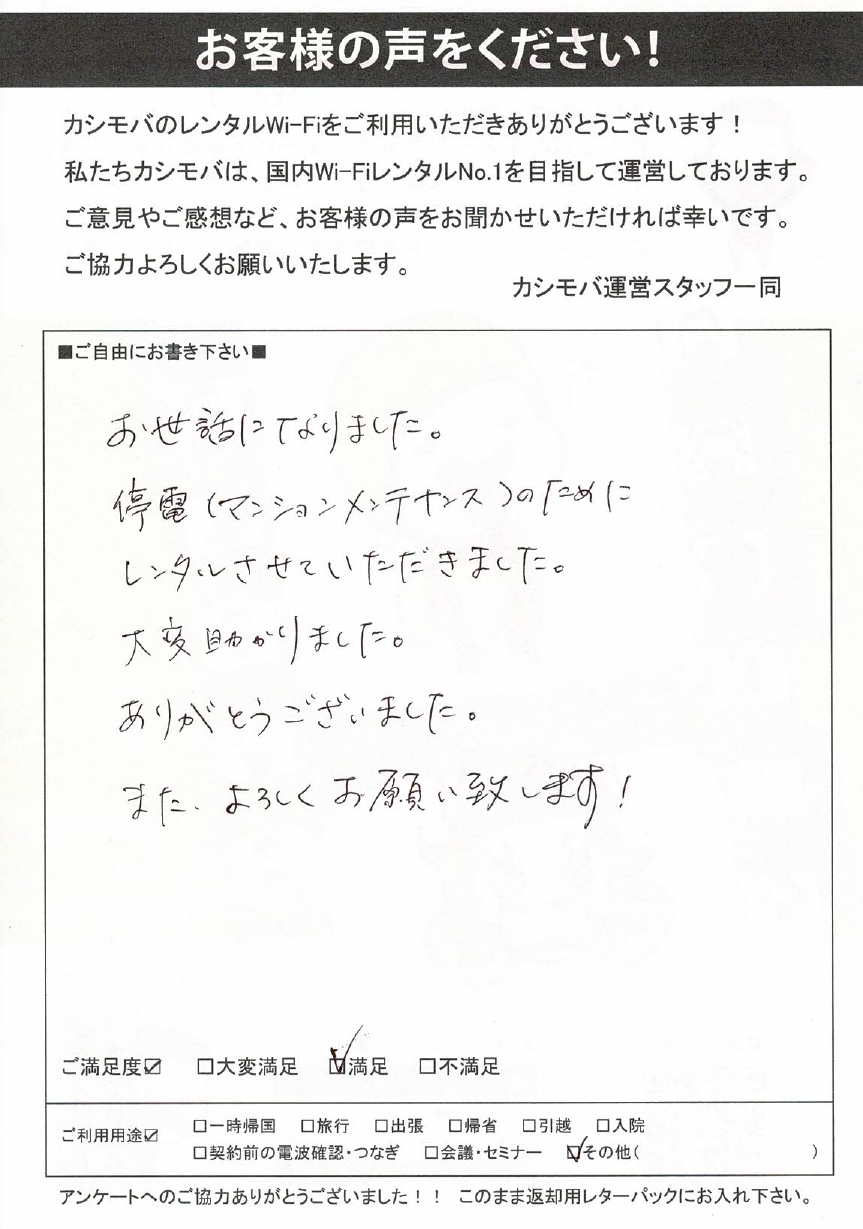 お客様の声をください!
カシモバのレンタルWi-Fiをご利用いただきありがとうございます!
私たちカシモバは、国内Wi-FiレンタルNo.1を目指して運営しております。
ご意見やご感想など、お客様の声をお聞かせいただければ幸いです。
ご協力よろしくお願いいたします。
カシモバ運営スタッフ一同
■ご自由にお書き下さい■
お世話になりました。
停電(マンションメンテナンス)のために
レンタルさせていただきました。
大変助かりました。
ありがとうございました。
また、よろしくお願い致します!
ご満足度☑ □大変満足 ☑満足 □不満足
ご利用用途☑ □一時帰国 □旅行 □出張 □帰省 □引越 □入院
□契約前の電波確認・つなぎ □会議・セミナー ☑その他( )
アンケートへのご協力ありがとうございました!! このまま返却用レターパックにお入れ下さい。